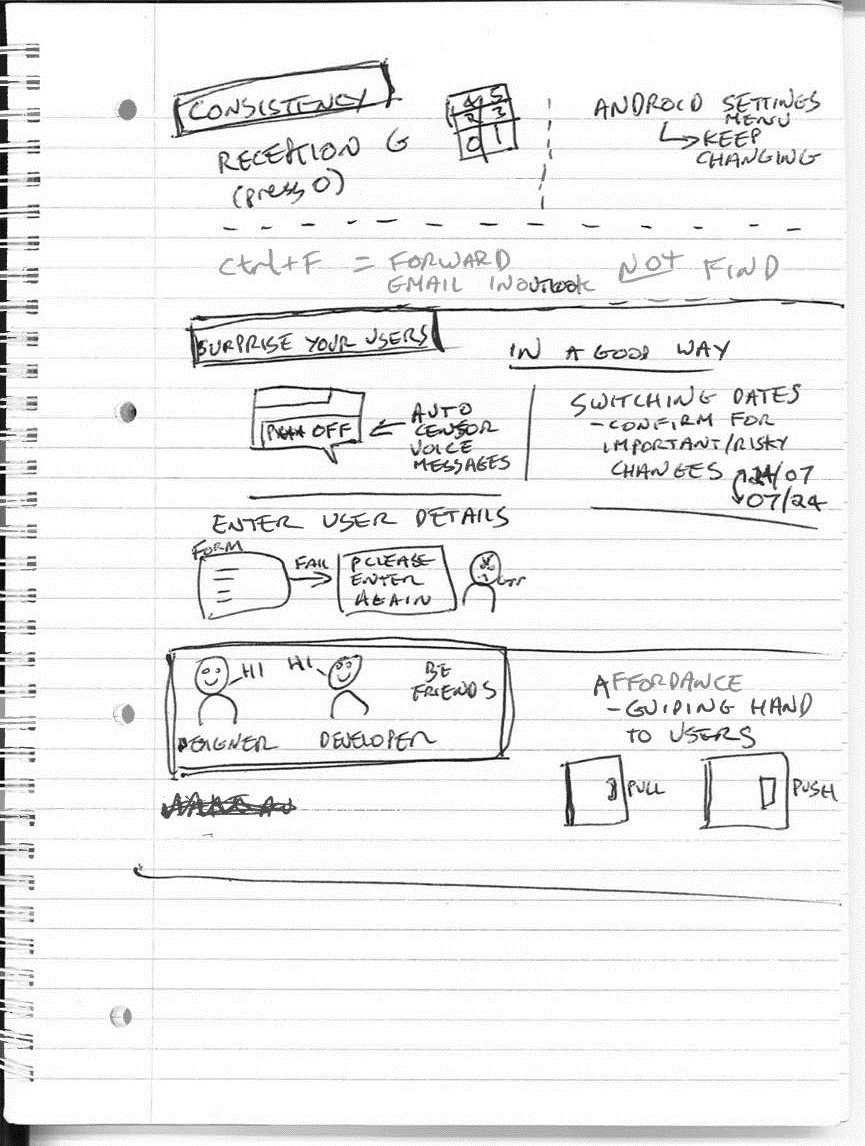 CONSISTENCY
RECEPTION G
(press 0)
4 5
2 3
0 1
ANDROID SETTINGS
MENU
KEEP
CHANGING
Ctrl+F = FORWARD
EMAIL IN OUTLOOK NOT FIND
SURPRISE YOUR USERS
IN A GOOD WAY
OFF
AUTO
CENSOR
VOICE
MESSAGES
SWITCHING DATES
- CONFIRM FOR
IMPORTANT/RISKY
CHANGES
24/07
07/24
ENTER USER DETAILS
FORM
FAIL
PLEASE
ENTER
AGAIN
HI
HI
BE
FRIENDS
DESIGNER
DEVELOPER
AFFORDANCE
- GUIDING HAND
TO USERS
PULL
PUSH